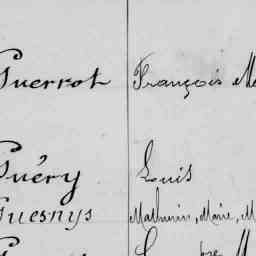 Guerrot François
Guéry Louis
Guesnys Mathurin, Marie, M